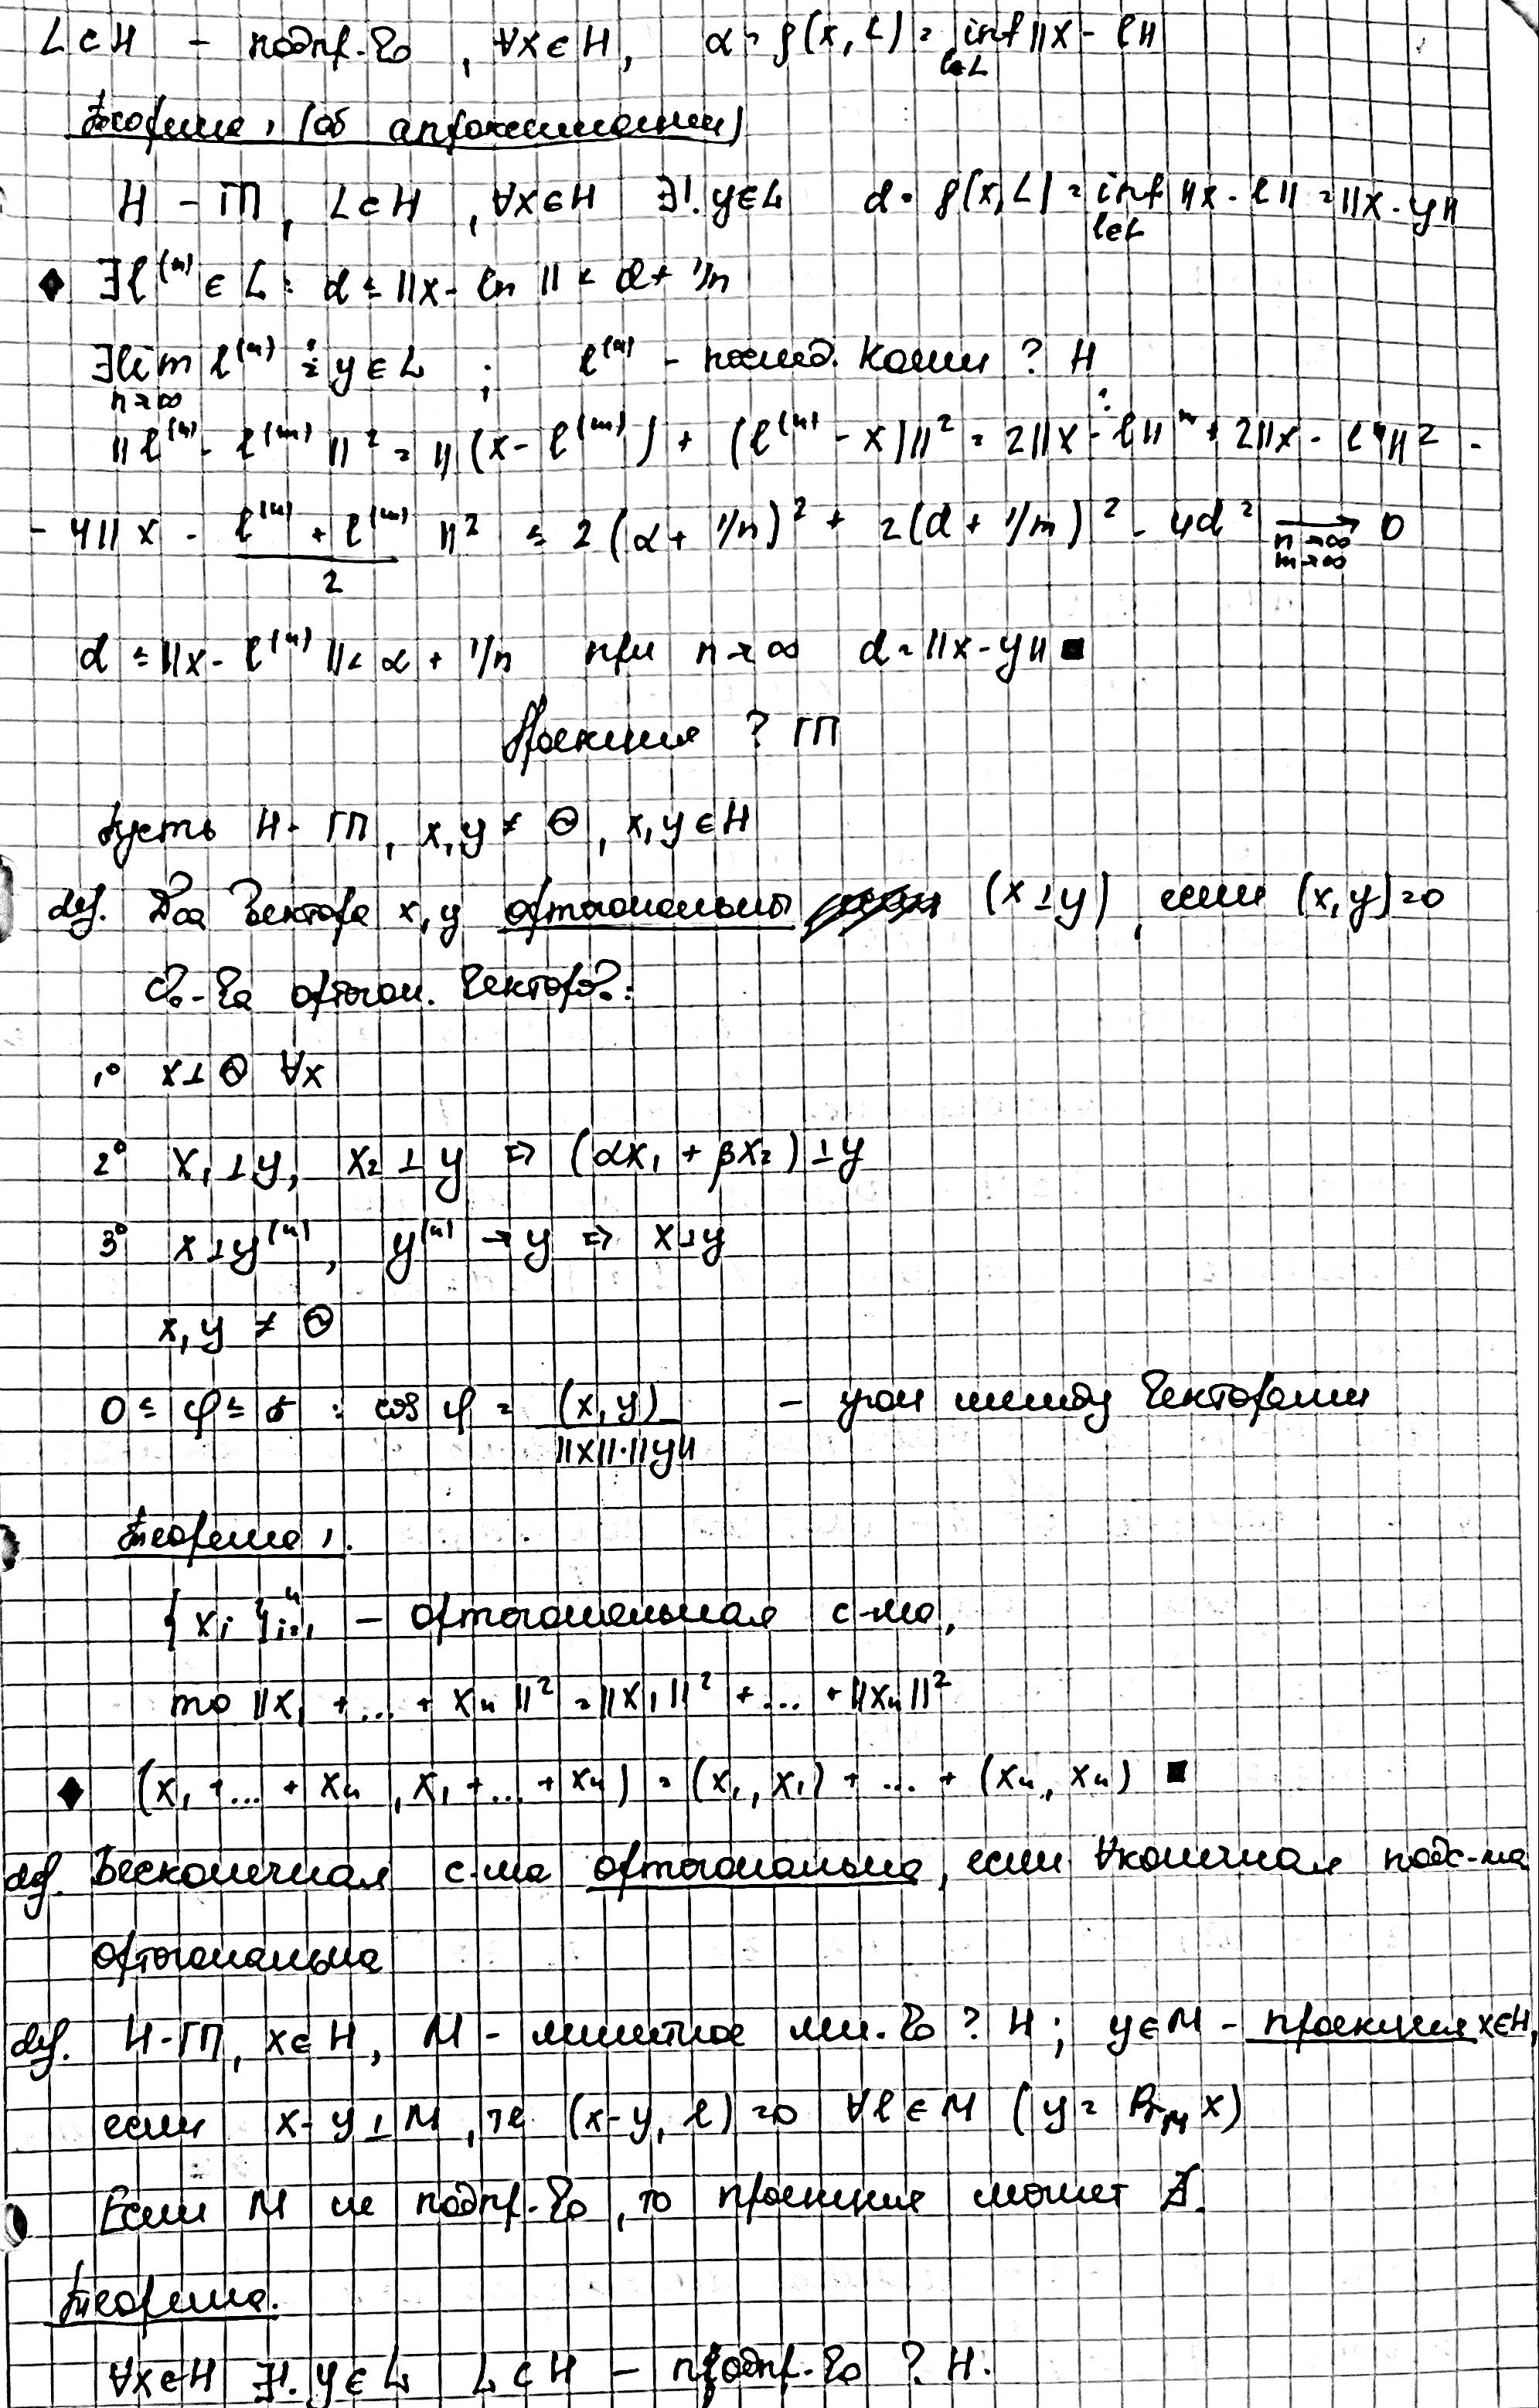 L ⊂ H – подпр-во, ∀x ∈ H, α = ρ(x, L) = inf ||x - l||
l∈L
Теорема, (об аппроксимации)
H – ГП, L ⊂ H, ∀x ∈ H ∃! y ∈ L d = ρ(x, L) = inf ||x - l|| = ||x - y||
l∈L
◆ ∃ l⁽ⁿ⁾ ∈ L : d ≤ ||x - ln|| < d + 1/n
∃ lim l⁽ⁿ⁾ = y ∈ L ; l⁽ⁿ⁾ – послед. Коши в H
n→∞
||l⁽ⁿ⁾ - l⁽ᵐ⁾||² = ||(x - l⁽ᵐ⁾) + (l⁽ⁿ⁾ - x)||² = 2||x - l||ᵐ + 2||x - lⁿ||² -
- 4||x - (l⁽ⁿ⁾ + l⁽ᵐ⁾)/2||² ≤ 2(α + 1/n)² + 2(d + 1/m)² - 4d² → 0
n→∞
m→∞
d ≤ ||x - l⁽ⁿ⁾|| < α + 1/n при n→∞ d = ||x - y|| ■
Проекция в ГП
Пусть H - ГП, x, y ≠ Θ, x, y ∈ H
def. Два вектора x, y ортогональны (x⊥y), если (x, y) = 0
Св-ва ортогон. векторов:
1° x⊥Θ ∀x
2° x₁⊥y, x₂⊥y ⇒ (αx₁ + βx₂)⊥y
3° x⊥y⁽ⁿ⁾, y⁽ⁿ⁾ → y ⇒ x⊥y
x, y ≠ Θ
0 ≤ φ ≤ π : cos φ = (x, y) / ||x||·||y|| – угол между векторами
Теорема,.
{xi}ⁿi=1 – ортогональная с-ма,
то ||x₁ + ... + xn||² = ||x₁||² + ... + ||xn||²
◆ (x₁ + ... + xn, x₁ + ... + xn) = (x₁, x₁) + ... + (xn, xn) ■
def. Бесконечная с-ма ортогональна, если ∀ конечная подс-ма
ортогональна
def. H-ГП, x ∈ H, M – линейное мн-во в H; y ∈ M – проекция x ∈ H,
если x - y ⊥ M, те (x - y, l) = 0 ∀l ∈ M (y = Pr_M x)
Если M не подпр-во, то проекция может ∄.
Теорема.
∀x ∈ H ∃! y ∈ L L ⊂ H – подпр-во в H.